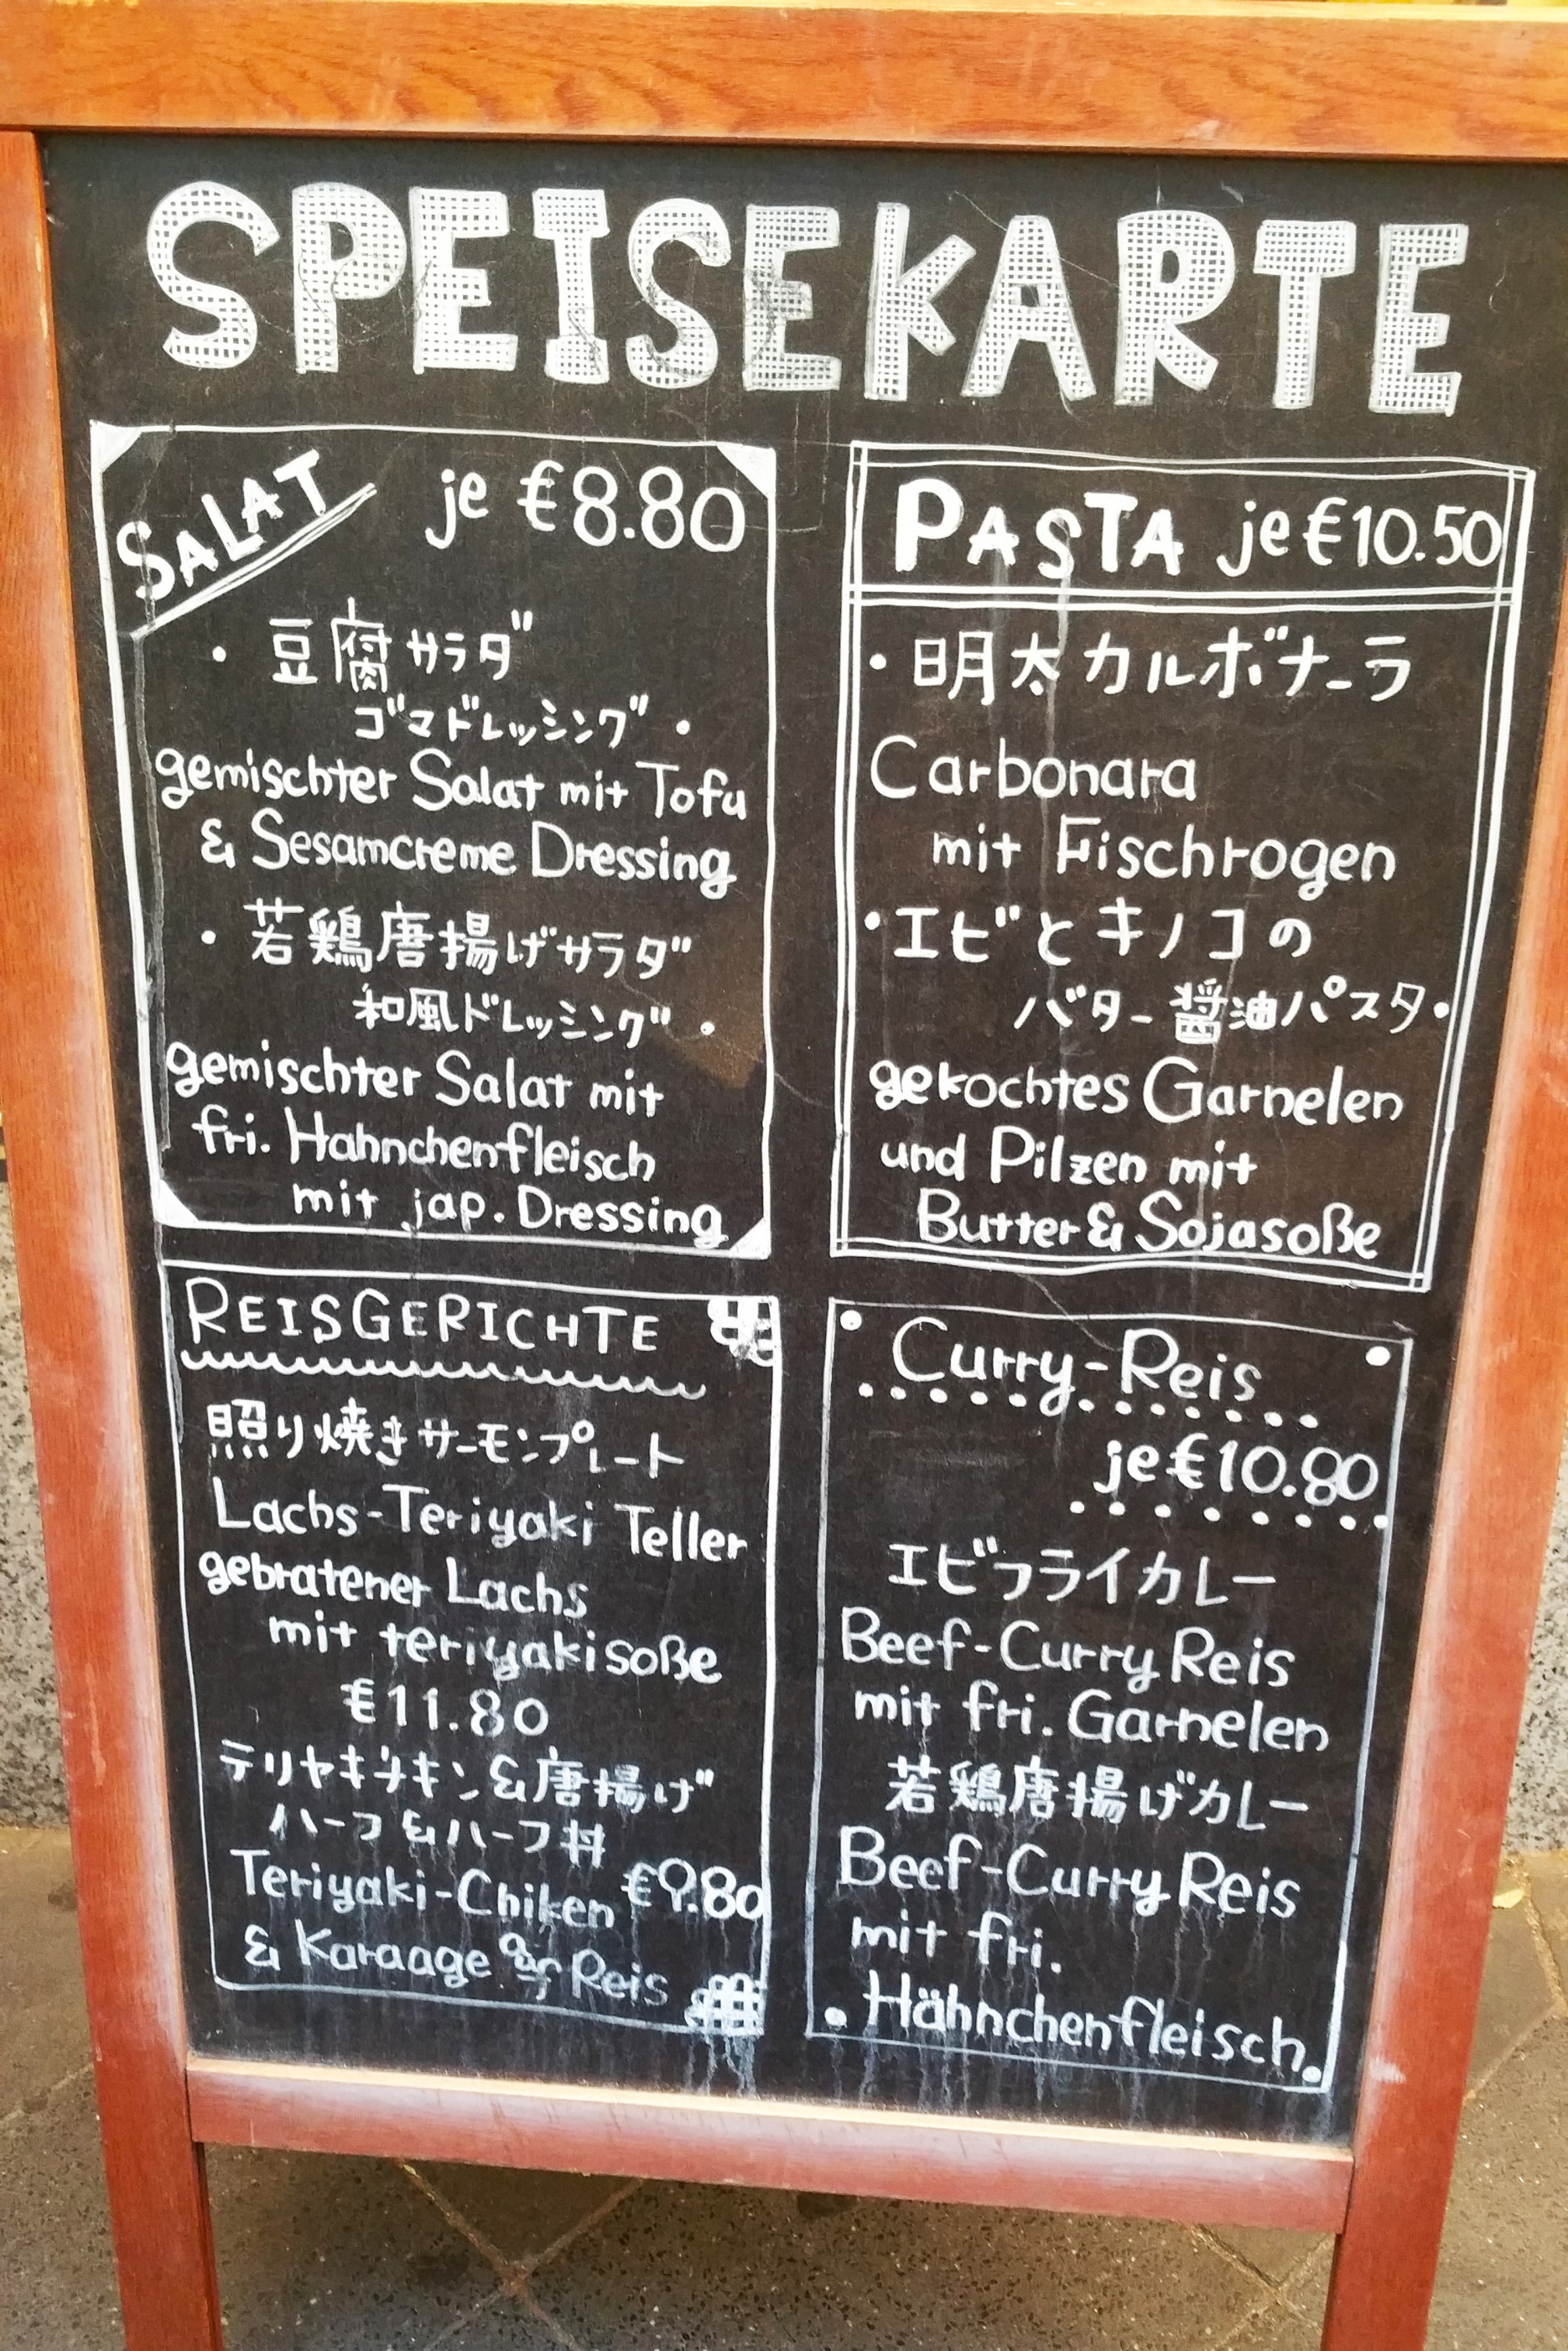 SPEISEKARTE
SALAT je €8.80
・豆腐サラダ
ゴマドレッシング・
gemischter Salat mit Tofu
& Sesamcreme Dressing
・若鶏唐揚げサラダ
和風ドレッシング・
gemischter Salat mit
fri. Hahnchenfleisch
mit jap. Dressing
PASTA je €10.50
・明太カルボナーラ
Carbonara
mit Fischrogen
・エビとキノコの
バター醤油パスタ・
gekochtes Garnelen
und Pilzen mit
Butter & Sojasoße
REISGERICHTE
照り焼きサーモンプレート
Lachs-Teriyaki Teller
gebratener Lachs
mit teriyakisoße
€11.80
テリヤキチキン&唐揚げ
ハーフ&ハーフ丼
Teriyaki-Chiken €9.80
& Karaage auf Reis
Curry-Reis
je €10.80
エビフライカレー
Beef-Curry Reis
mit fri. Garnelen
若鶏唐揚げカレー
Beef-Curry Reis
mit fri.
Hähnchenfleisch.